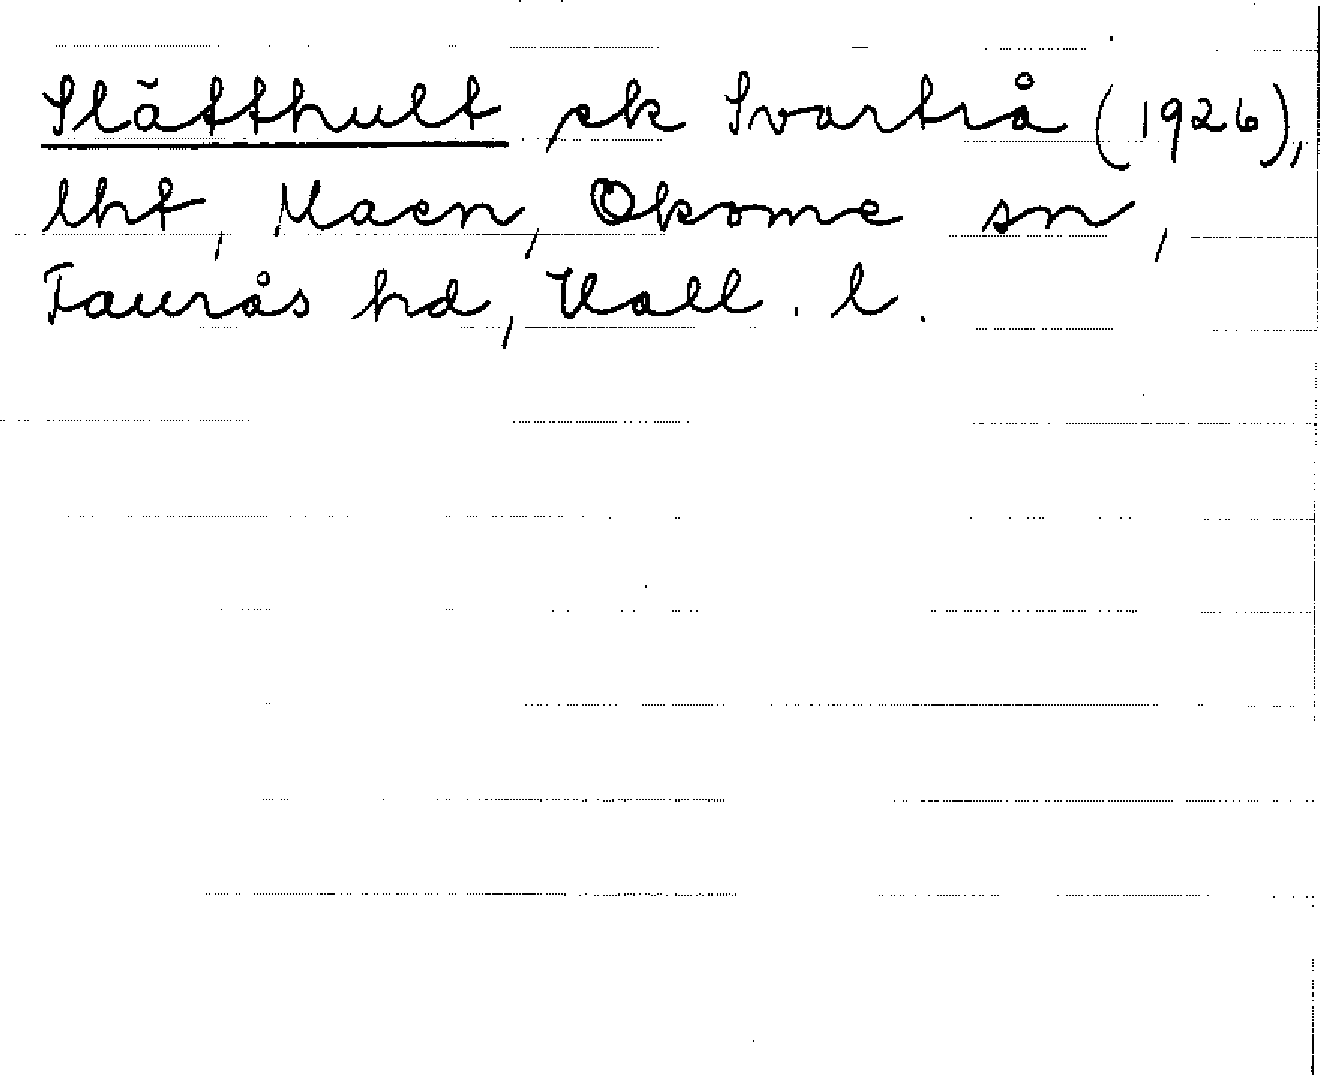 Slätthult Svartrå (1926),
lht, Maen, Okome sn,
Faurås hd, Hall. l.